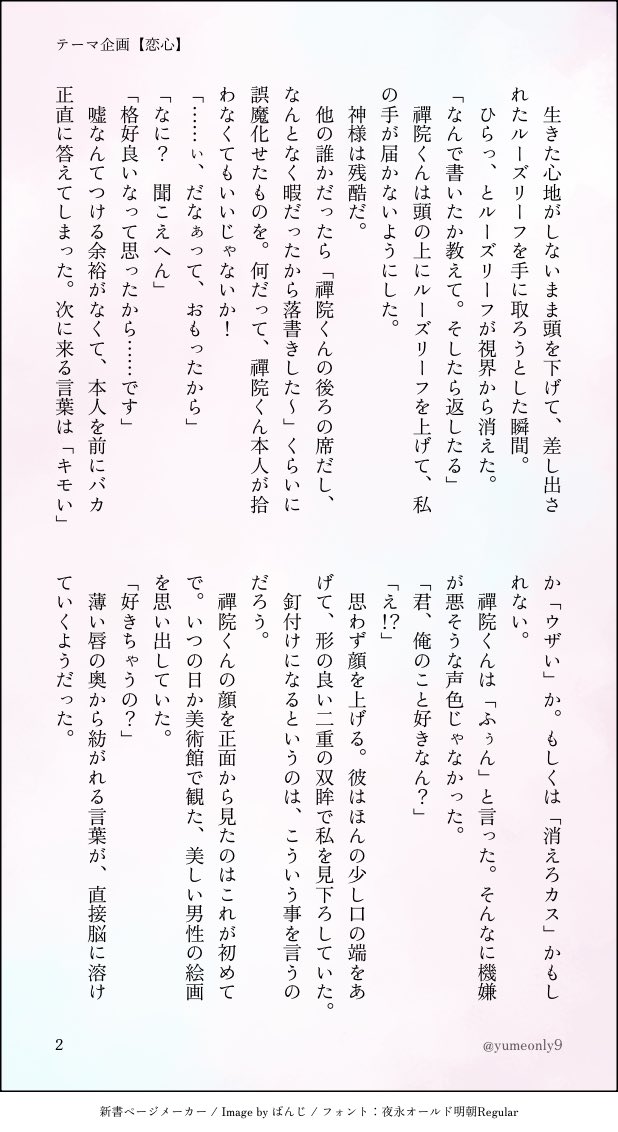 テーマ企画【恋心】
　生きた心地がしないまま頭を下げて、差し出さ
れたルーズリーフを手に取ろうとした瞬間。
　ひらっ、とルーズリーフが視界から消えた。
「なんで書いたか教えて。そしたら返したる」
　禪院くんは頭の上にルーズリーフを上げて、私
の手が届かないようにした。
　神様は残酷だ。
　他の誰かだったら「禪院くんの後ろの席だし、
なんとなく暇だったから落書きした〜」くらいに
誤魔化せたものを。何だって、禪院くん本人が拾
わなくてもいいじゃないか！
「……ぃ、だなぁって、おもったから」
「なに？　聞こえへん」
「格好良いなって思ったから……です」
　嘘なんてつける余裕がなくて、本人を前にバカ
正直に答えてしまった。次に来る言葉は「キモい」
か「ウザい」か。もしくは「消えろカス」かもし
れない。
　禪院くんは「ふぅん」と言った。そんなに機嫌
が悪そうな声色じゃなかった。
「君、俺のこと好きなん？」
「え!?」
　思わず顔を上げる。彼はほんの少し口の端をあ
げて、形の良い二重の双眸で私を見下ろしていた。
　釘付けになるというのは、こういう事を言うの
だろう。
　禪院くんの顔を正面から見たのはこれが初めて
で。いつの日か美術館で観た、美しい男性の絵画
を思い出していた。
「好きちゃうの？」
　薄い唇の奥から紡がれる言葉が、直接脳に溶け
ていくようだった。
2
@yumeonly9
新書ページメーカー / Image by ぱんじ / フォント：夜永オールド明朝Regular